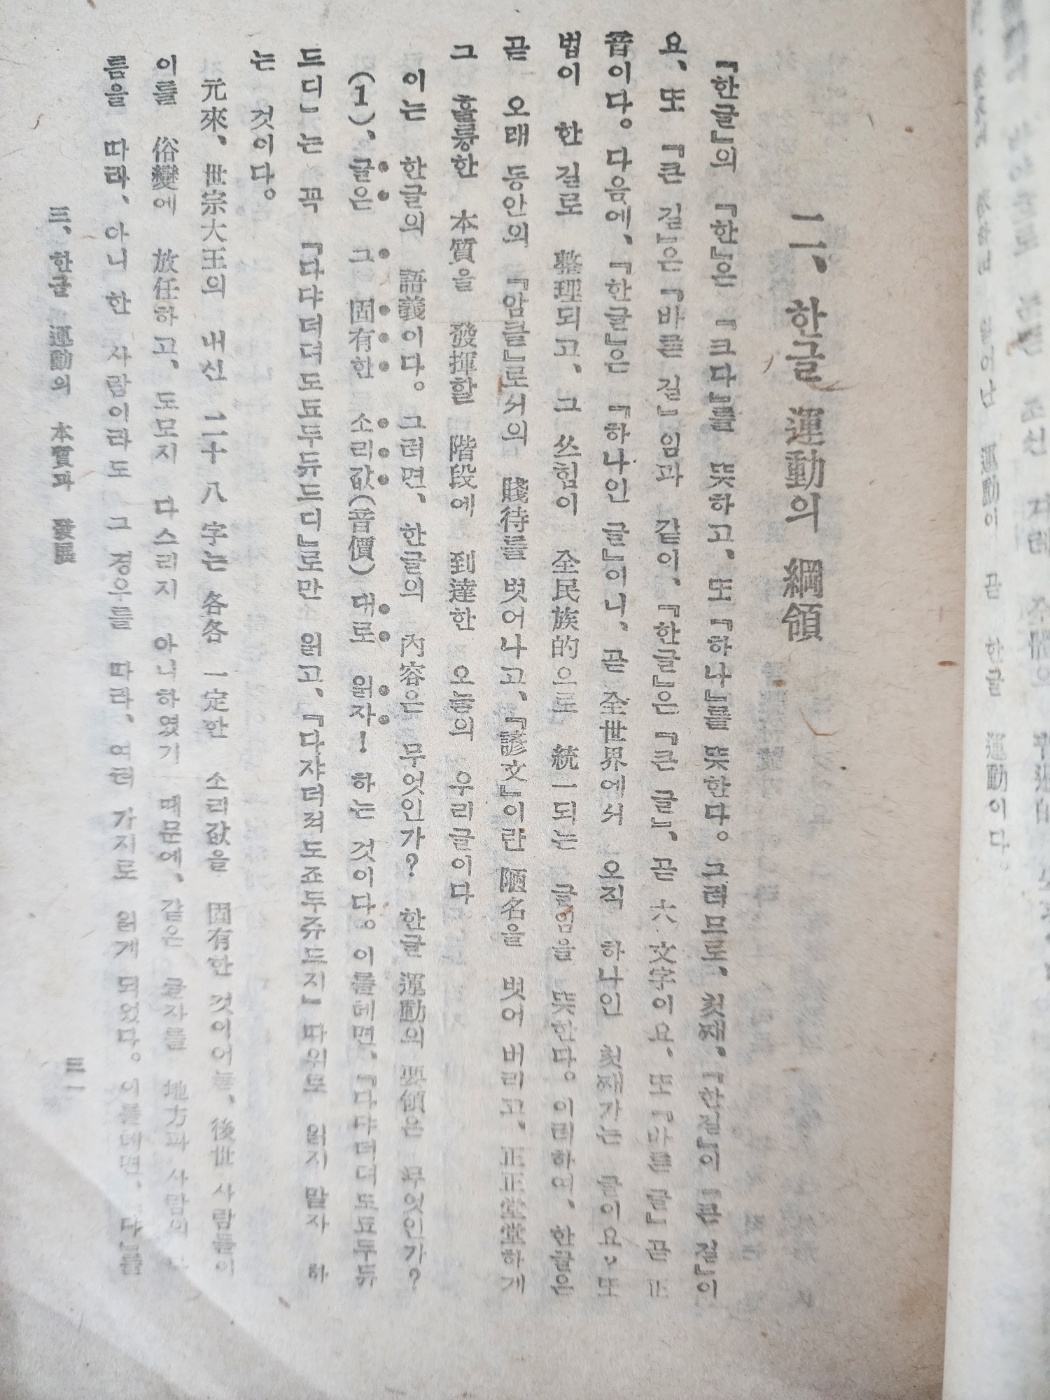 二、한글 運動의 綱領
『한글』의 『한』은 『크다』를 뜻하고、또 『하나』를 뜻한다。그러므로、첫째、『한길』이 『큰 길』이
요、또 『큰 길』은 『바른 길』임과 같이、『한글』은 『큰 글』、곧 六 文字이요、또 『바른 글』 곧 正
音이다。다음에、『한글』은 『하나인 글』이니、곧 全世界에서 오직 하나인 첫째가는 글이요、또
법이 한 길로 整理되고、그 쓰힘이 全民族的으로 統一되는 글임을 뜻한다。이리하여、한글은
곧 오래 동안의 『암클』로서의 賤待를 벗어나고、『諺文』이란 陋名을 벗어 버리고、正正堂堂하게
그 훌륭한 本質을 發揮할 階段에 到達한 오늘의 우리글이다
이는 한글의 語義이다。그러면、한글의 內容은 무엇인가? 한글 運動의 要領은 무엇인가?
(1)、글은 그 固有한 소리값(音價)대로 읽자! 하는 것이다。이를테면、『다댜더뎌도됴두듀
드디』는 꼭 『다댜더뎌도됴두듀드디』로만 읽고、『다쟈더져도죠두쥬드지』 따위로 읽지 말자 하
는 것이다。
元來、世宗大王의 내신 二十八字는 各各 一定한 소리값을 固有한 것이어늘、後世 사람들이
이를 俗變에 放任하고、도모지 다스리지 아니하였기 때문에、같은 글자를 地方과 사람의
름을 따라、아니 한 사람이라도 그 경우를 따라、여러 가지로 읽게 되었다。이를테면、『다』를
三、한글 運動의 本質과 發展
三一
運動이 곧 한글 運動이다。